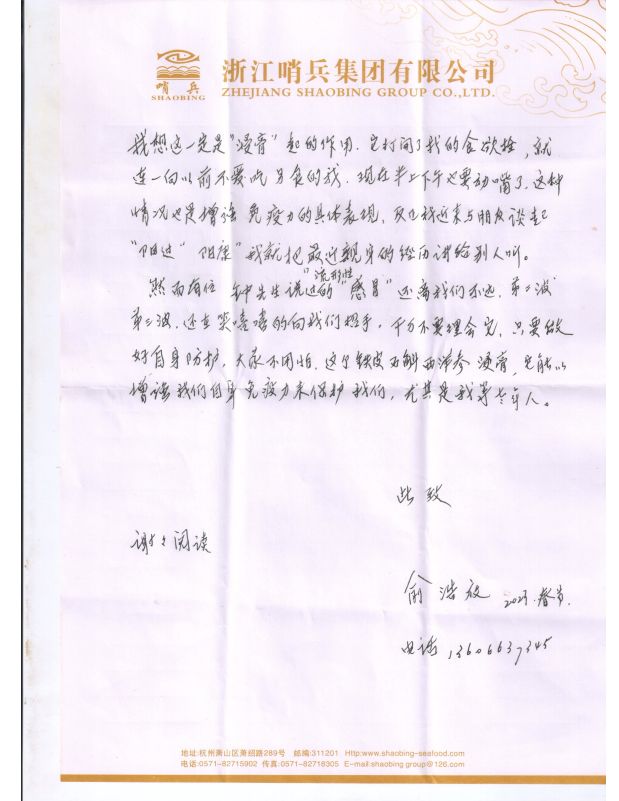 哨兵
SHAOBING
浙江哨兵集团有限公司
ZHEJIANG SHAOBING GROUP CO.,LTD.
我想这一定是“浸膏”起的作用，它打开了我的食欲栓，就
连一向以前不要吃另食的我，现在半上下午也要动嘴了。这种
情况也是增强免疫力的具体表现，反正我近来与朋友谈起
“阳过”“阳康”我就把最近亲身的经历讲给别人听。
“流形性
然而有位钟先生说过的“感冒”还离我们不远，第二波
第三波，还在笑嘻嘻的向我们招手，千万不要理会它，只要做
好自身防护，大家不用怕，这个铁皮石斛西洋参浸膏，它能以
增强我们自身免疫力来保护我们，尤其是我等老年人。
此致
谢谢阅读
俞浩放 2023.春节.
电话 13606637345
地址:杭州萧山区萧绍路289号 邮编:311201 Http:www.shaobing-seafood.com
电话:0571-82715902 传真:0571-82718305 E-mail:shaobing group@126.com